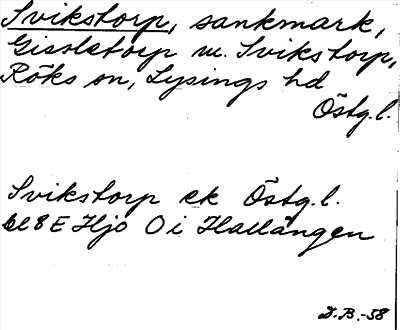 Svikstorp, sankmark,
Gissletorp m. Svikstorp,
Röks sn, Lysings hd
Östg.l.
Svikstorp ek Östg.l.
bl 8 E Hjo O i Hallängen
D.B.-58